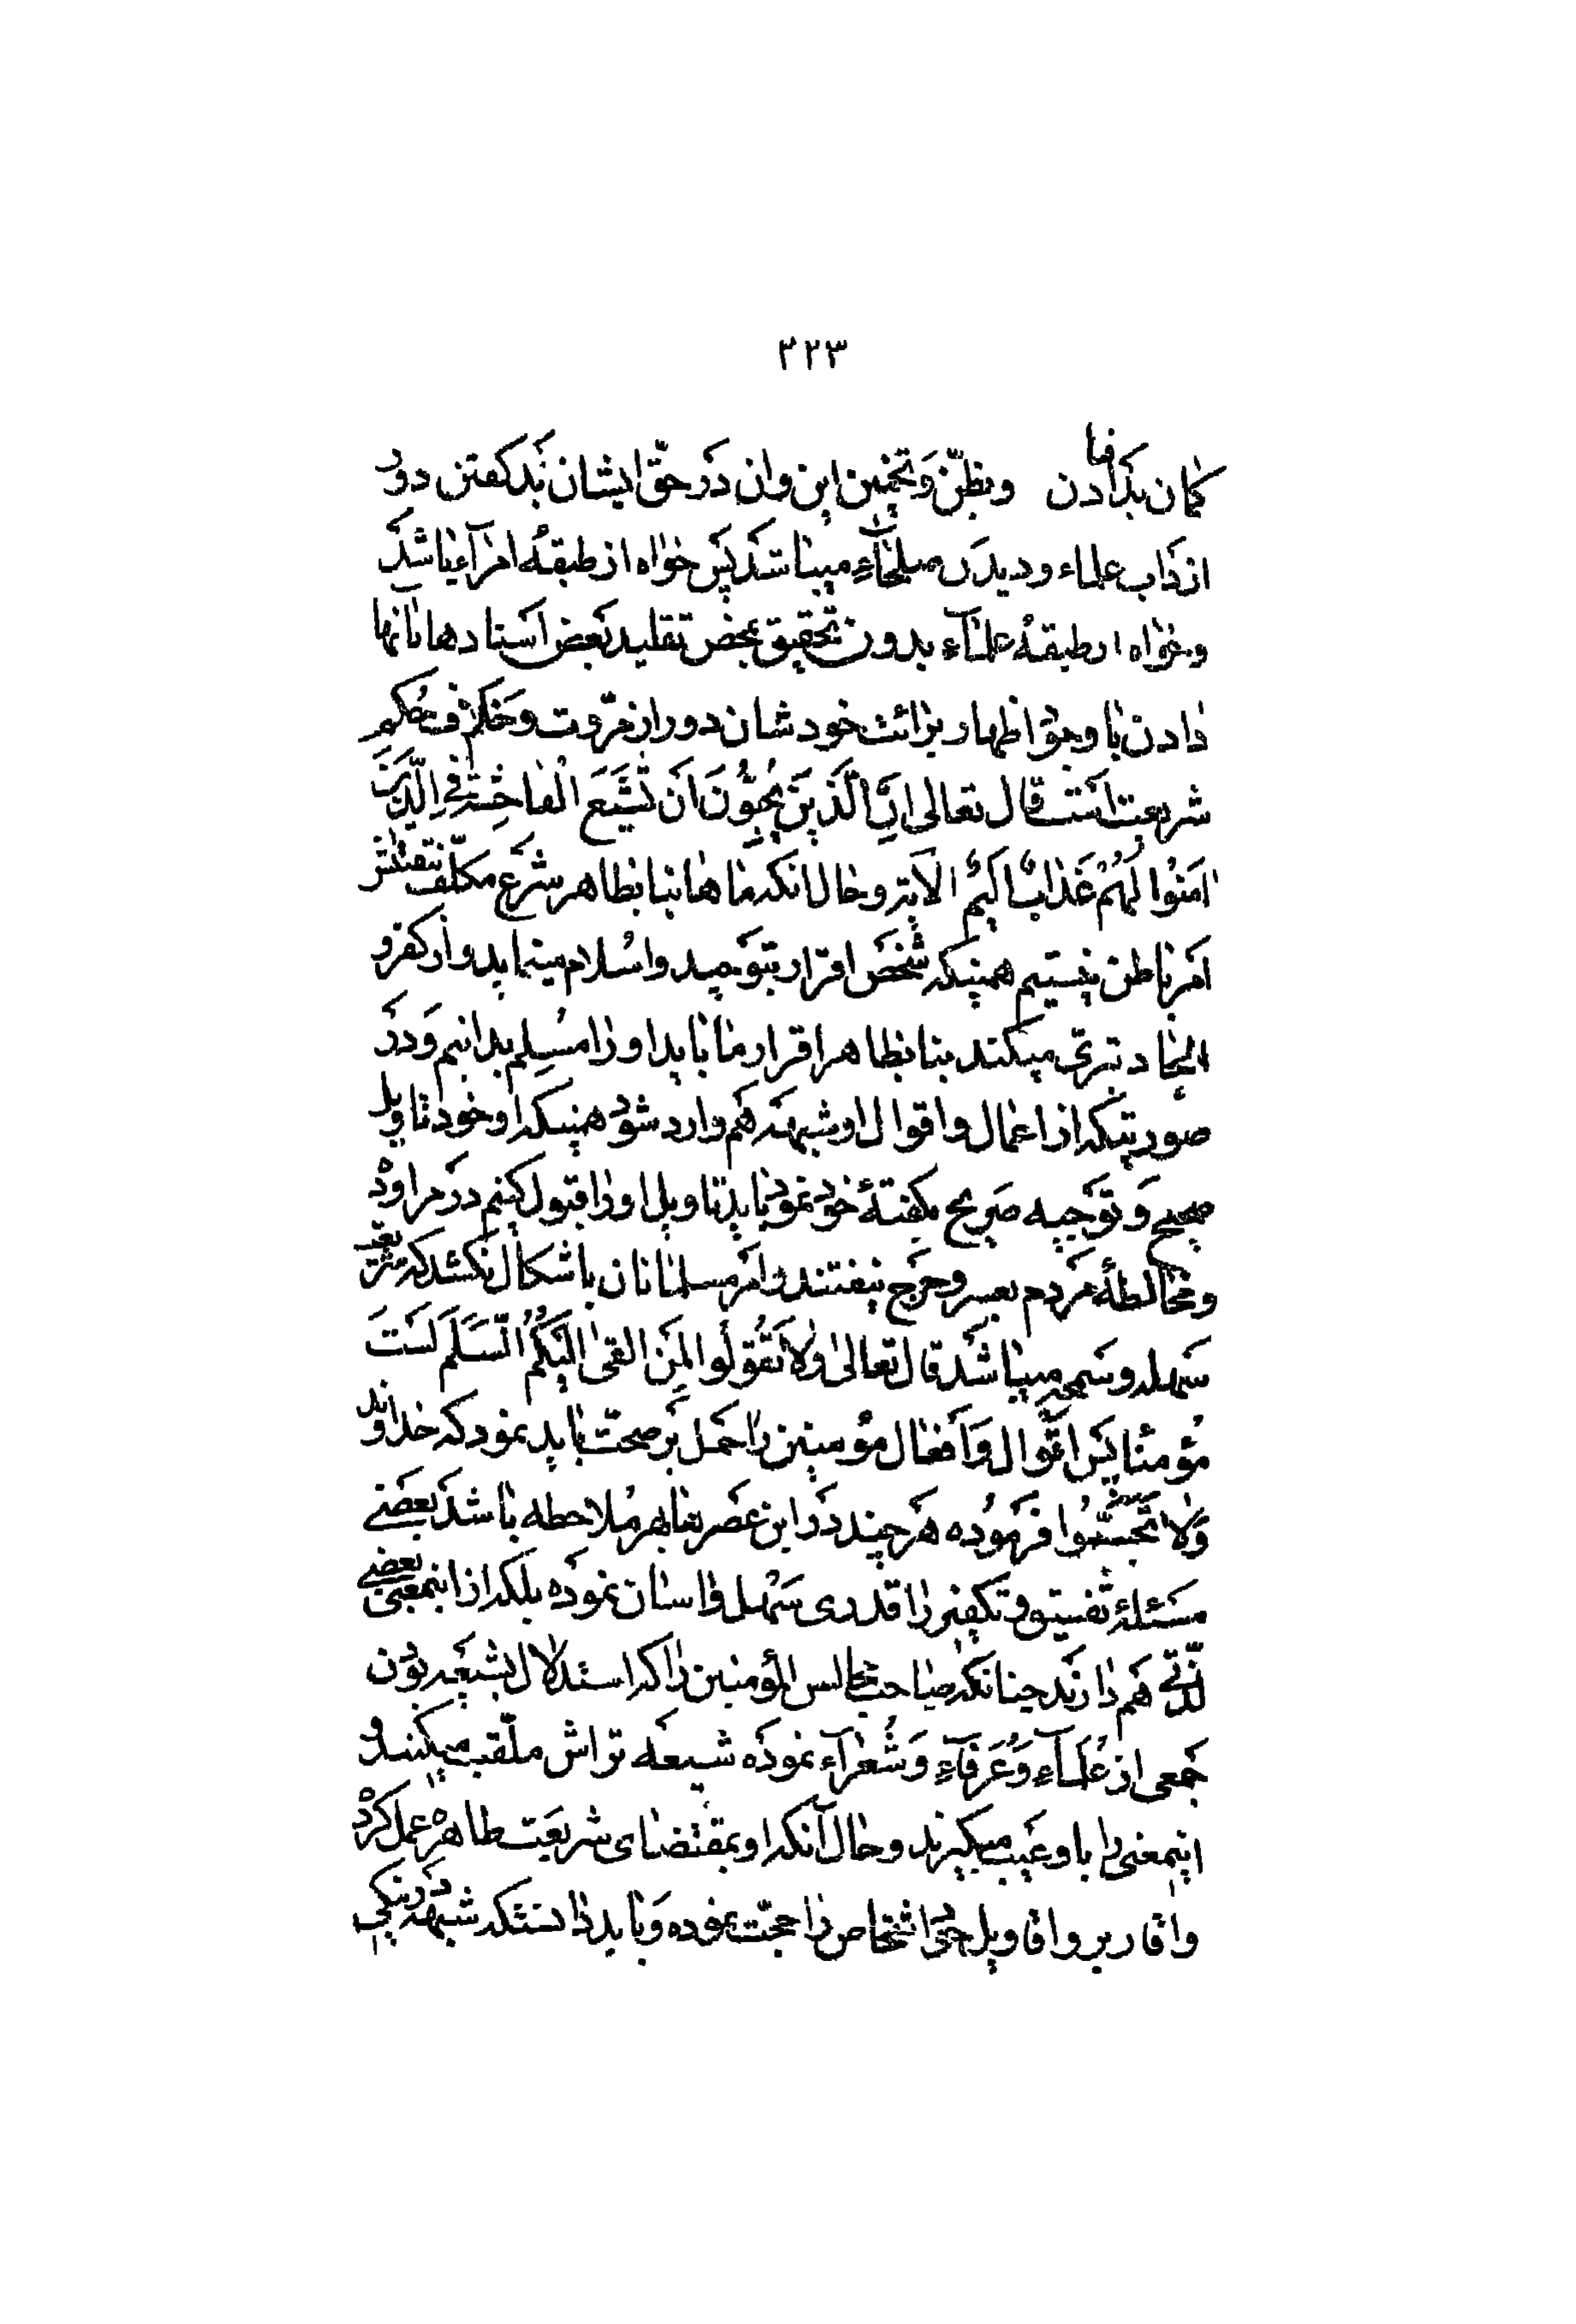 ۳۲۳
گمان بد دادن وبظنّ وَتخمین این وان دَر حقّ ایشان بَد کفتن دور
از دَاب علماء ودیدن صلحآءِ میباشد پَس خواه از طبقهٔ امرآء باشد
وخواه از طبقهٔ علمآءِ بدون تحقیق بمحض تقلید بَعض اسنادها بآنها
دادن با وجود اظهار برائت خودشان دور از مرّوت وَخلاف حُکمِ
شریعت است قال تعالی اِنَّ الَّذینَ یُحِبُّونَ اَن تَشیعَ الْفاحِشَةُ فِی الَّذینَ
امَنُوا لَهُمْ عَذابٌ اَلیمٌ الآیة وحال انکه ماها بنا بظاهر شَرع مکلّف بتفتیش
امر باطن نیستیم همینکه شخص اقرار بتوحید واسلام مینماید واز کفر و
الحاد تبرّی میکند بنا بظاهر اقرار ما باید او را مسلِم بدانیم وَدر
صورتیکه از اعمال واقوال او شبهه هَم وارد شود همینکه او خود تاویل
صحیح وَ توجیه صریح بکفتهٔ خود نمود باید تاویل او را قبول کنیم در مراوده
ومخالطهٔ مَردم بعسر وحرج نیفتند وامر مسلمانان باشکال نکشد که شریعت
سَهله وسَمحه میباشد قال تعالی وَلا تَقُولُوا لِمَن القی اِلَیکُمُ السَّلَمَ لَستَ
مُؤمنًا پَس اقوال وَ اَفعال مؤمنین را حمل بَر صحّت باید نمود که خداوند
وَلا تَجَسَّسُوا فرموده هَر چند دَر این عَصر بظاهر مُلاحظه باشد بعضی
مسَئلهٔ تفسیق وتکفیر را قدری سَهل واسان نموده بلکه از اینمعنی بعضی
لذّتی هَم دارَند چنانکه صاحب مجالس المؤمنین را که استدلال بشیعه بودن
جَمعی از عُلَمآءِ وَعُرَفآءِ وَشُعرآء نموده شیعه تراش ملقّب میکنند و
اینمعنی را باو عیب میکیرند وحال آنکه او بمقتضای شریعت طاهره عمل کرده
واقاریر واقاویل اشخاص را حجّت نموده وَباید دانست که شبهه در نیکی